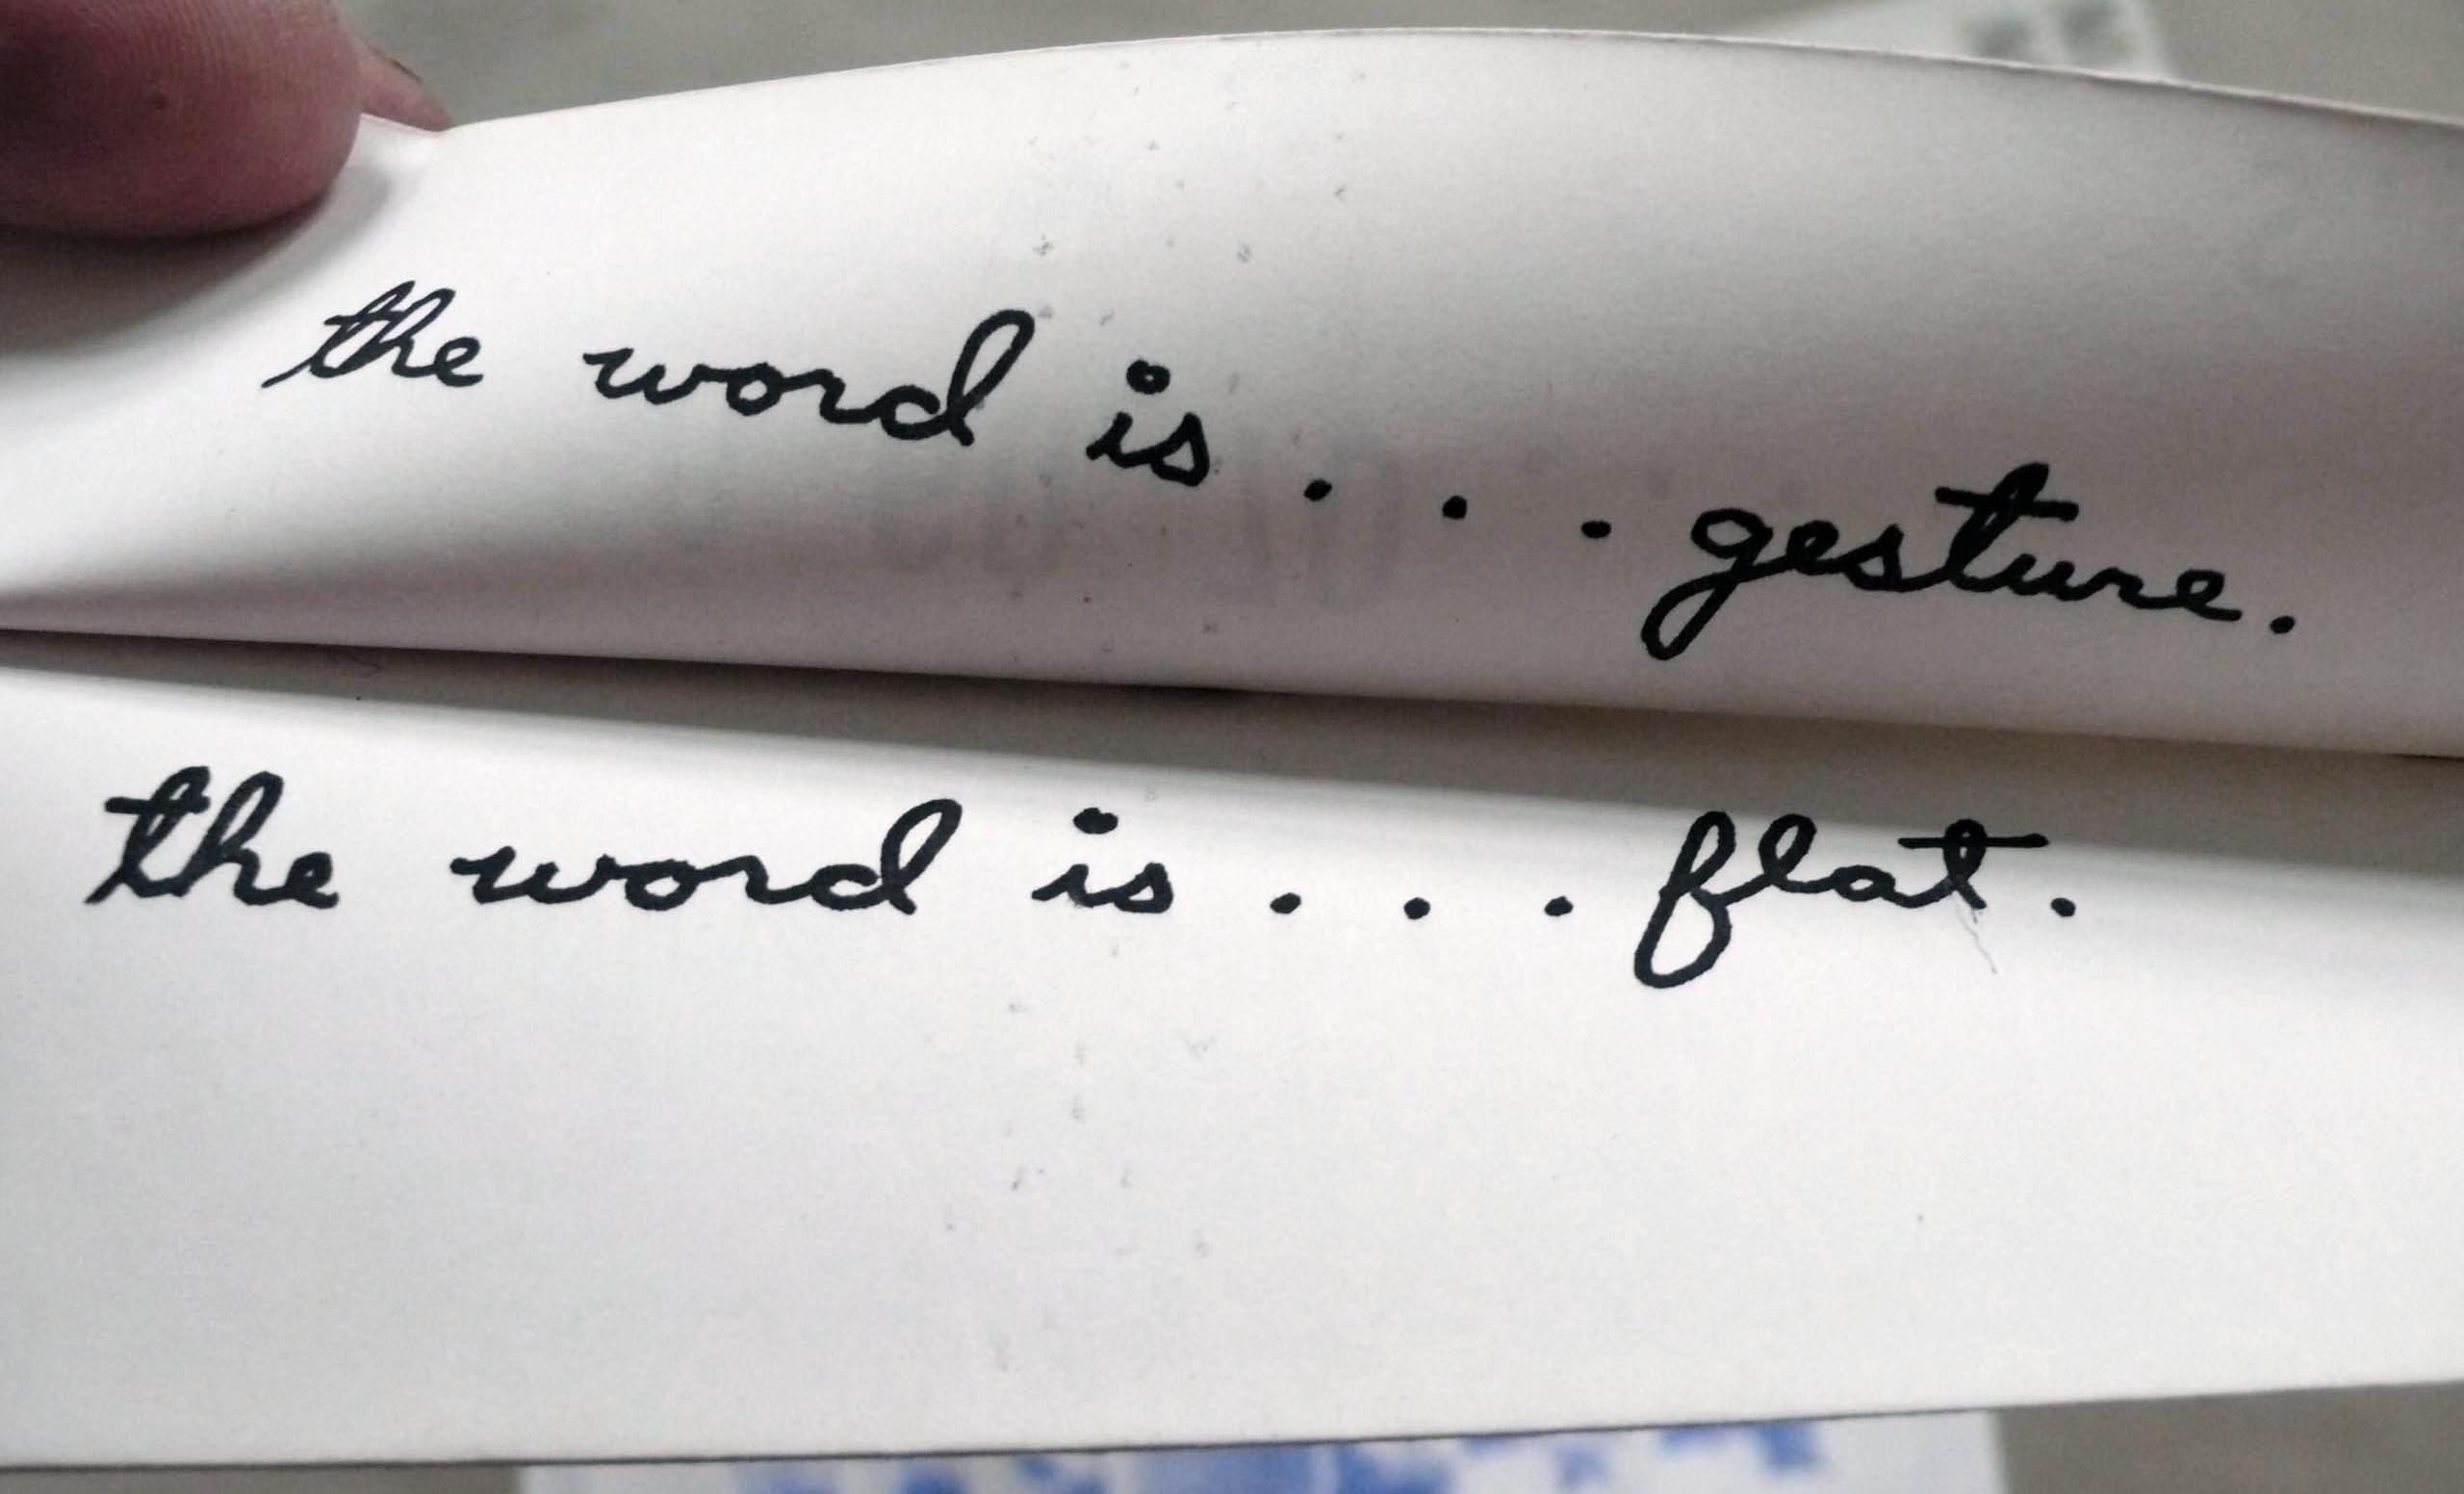 the word is . . . gesture.
the word is . . . flat.